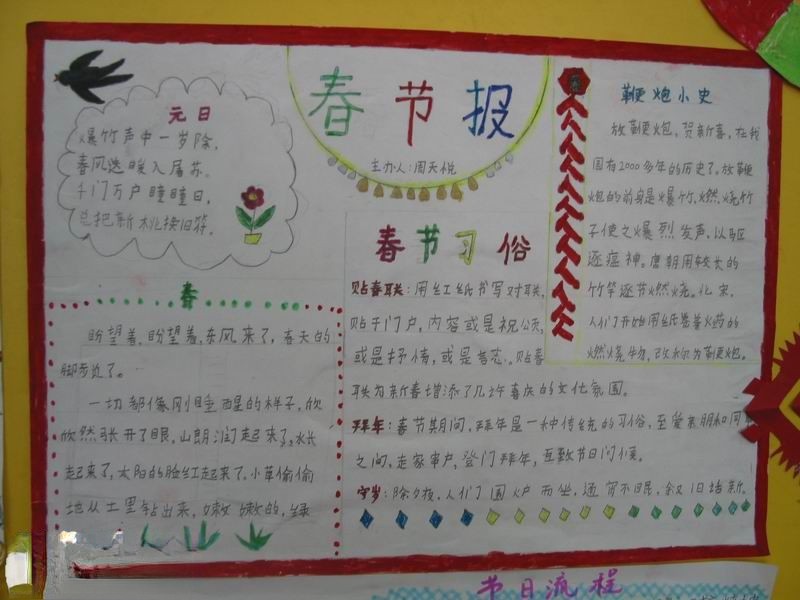 春节报
主办人:周天悦
元日
爆竹声中一岁除,
春风送暖入屠苏。
千门万户曈曈日,
总把新桃换旧符。
春
盼望着,盼望着,东风来了,春天的
脚步近了。
一切都像刚睡醒的样子,欣
欣然张开了眼。山朗润起来了,水长
起来了,太阳的脸红起来了。小草偷偷
地从土里钻出来,嫩嫩的,绿
春节习俗
贴春联:用红纸书写对联,
贴于门户,内容或是祝颂,
或是抒情,或是言志。贴春
联为新春增添了几许喜庆的文化氛围。
拜年:春节期间,拜年是一种传统的习俗,至爱亲朋和同事
之间,走家串户,登门拜年,互致节日问候。
守岁:除夕夜,人们围炉而坐,通宵不眠,叙旧话新。
鞭炮小史
放鞭炮,贺新春,在我
国有2000多年的历史了。放鞭
炮的前身是爆竹,燃烧竹
子使之爆烈发声,以驱
逐瘟神。唐朝用较长的
竹竿逐节燃烧。北宋,
人们开始用纸卷着火药的
燃烧物,改称为鞭炮。
节日流程